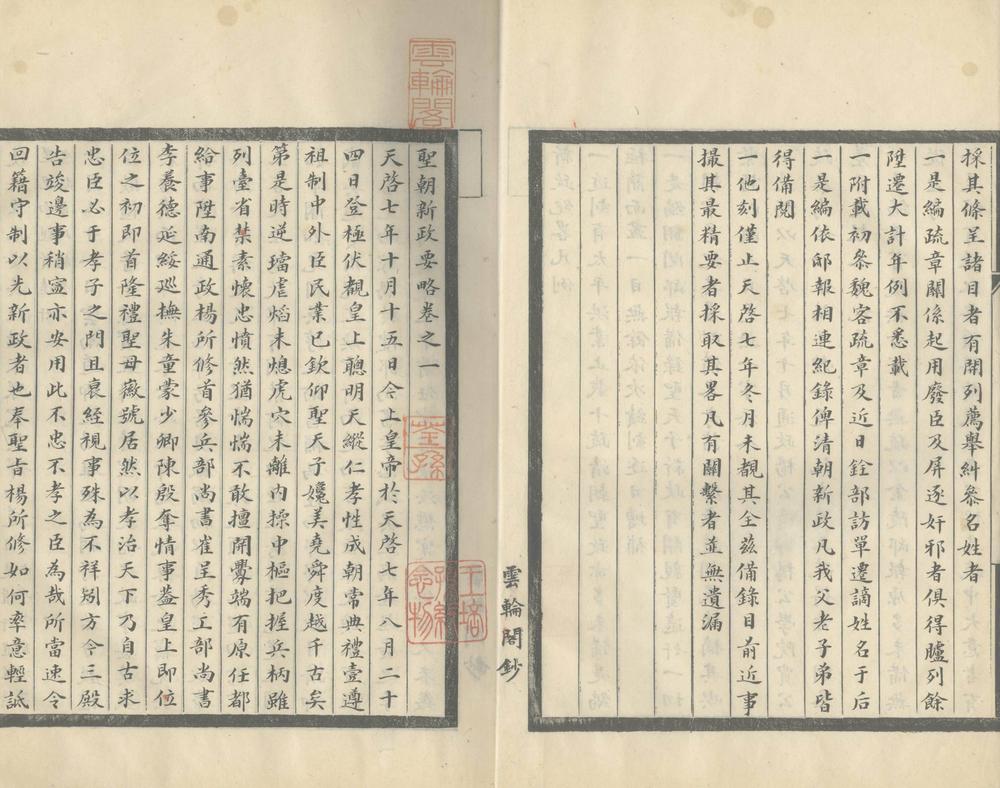 採其條呈諸目者有開列薦舉糾叅名姓者
一是編疏章關係起用廢臣及屏逐奸邪者俱得臚列餘
陞遷大計年例不悉載
一附載初叅魏客疏章及近日銓部訪單遷謫姓名于后
一是編依邸報相連紀錄俾清朝新政凡我父老子弟皆
得備閱
一他刻僅止天啓七年冬月未覩其全茲備錄目前近事
撮其最精要者採取其畧凡有關繫者並無遺漏
雲輪閣鈔
雲輪閣
荃孫
聖朝新政要略卷之一
天啓七年十月十五日今上皇帝於天啓七年八月二十
四日登極伏覩皇上聰明天縱仁孝性成朝常典禮壹遵
祖制中外臣民業已欽仰聖天子媲美堯舜度越千古矣
第是時逆璫虐熖未熄虎穴未離內操中樞把握兵柄雖
列臺省禁素懷忠憤然猶惴惴不敢擅開釁端有原任都
給事陞南通政楊所修首參兵部尚書崔呈秀工部尚書
李養德延綏巡撫朱童蒙少卿陳殷奪情事葢皇上即位
位之初即首隆禮聖母徽號居然以孝治天下乃自古求
忠臣必于孝子之門且衰絰視事殊為不祥矧方今三殿
告竣邊事稍寍亦安用此不忠不孝之臣為哉所當速令
回籍守制以光新政者也奉聖旨楊所修如何率意輕詆